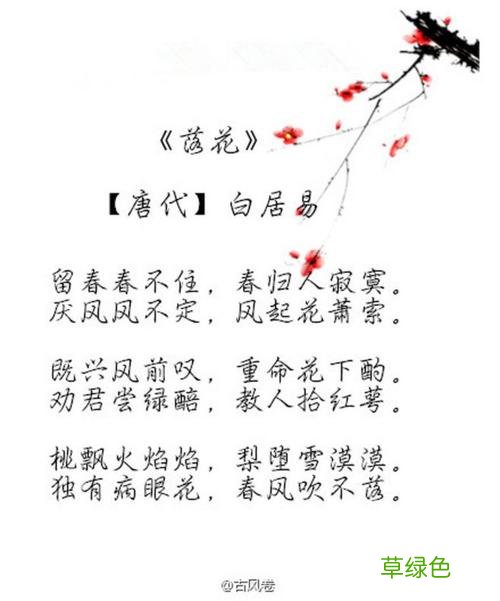 《落花》
【唐代】白居易
留春春不住，春归人寂寞。
厌风风不定，风起花萧索。
既兴风前叹，重命花下酌。
劝君尝绿醅，教人拾红萼。
桃飘火焰焰，梨堕雪漠漠。
独有病眼花，春风吹不落。
草绿色
@古风卷